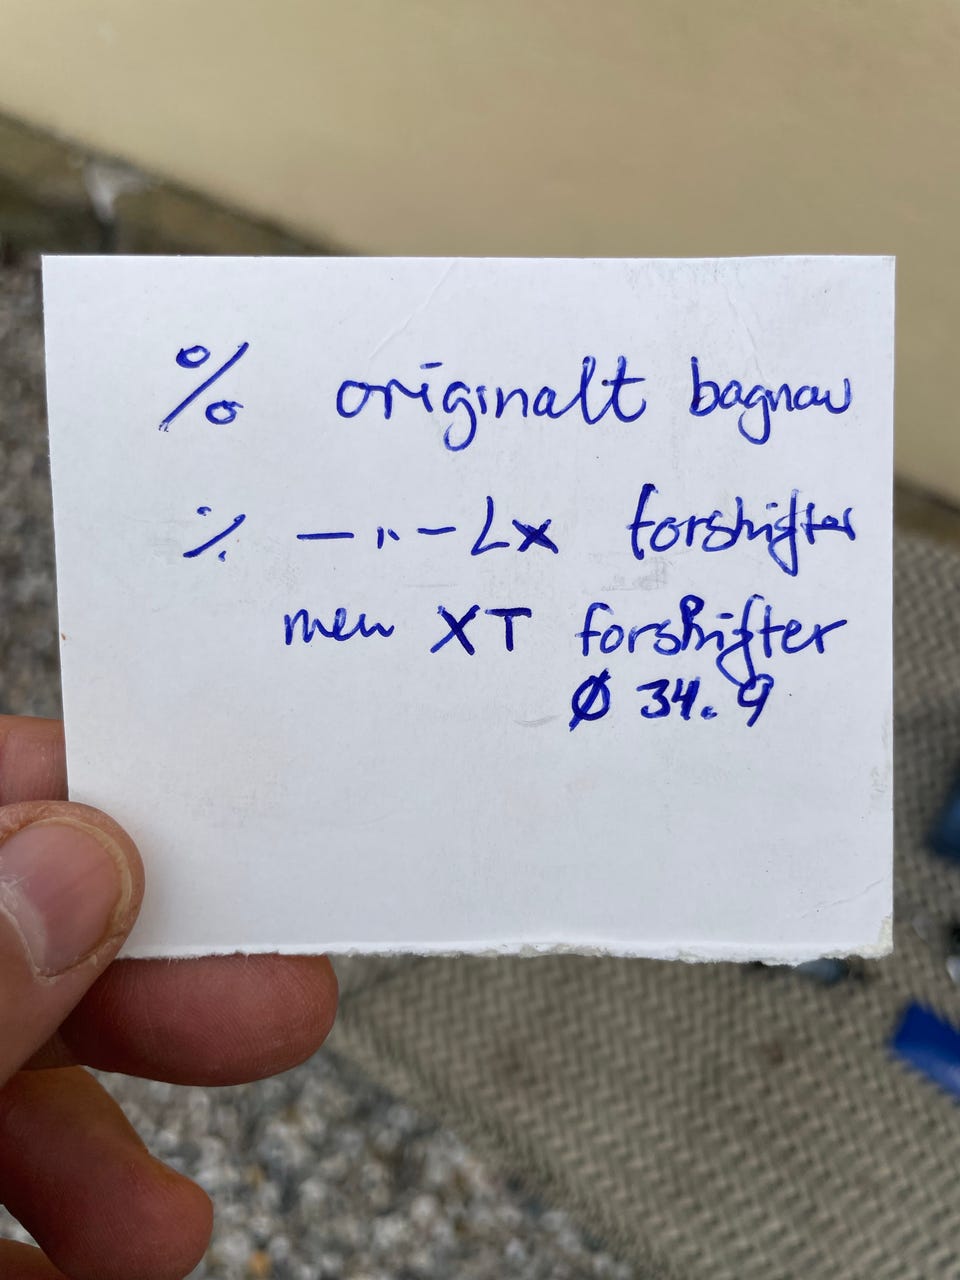 % originalt bagnav
% — " — LX forskifter
men XT forskifter
Ø 34.9